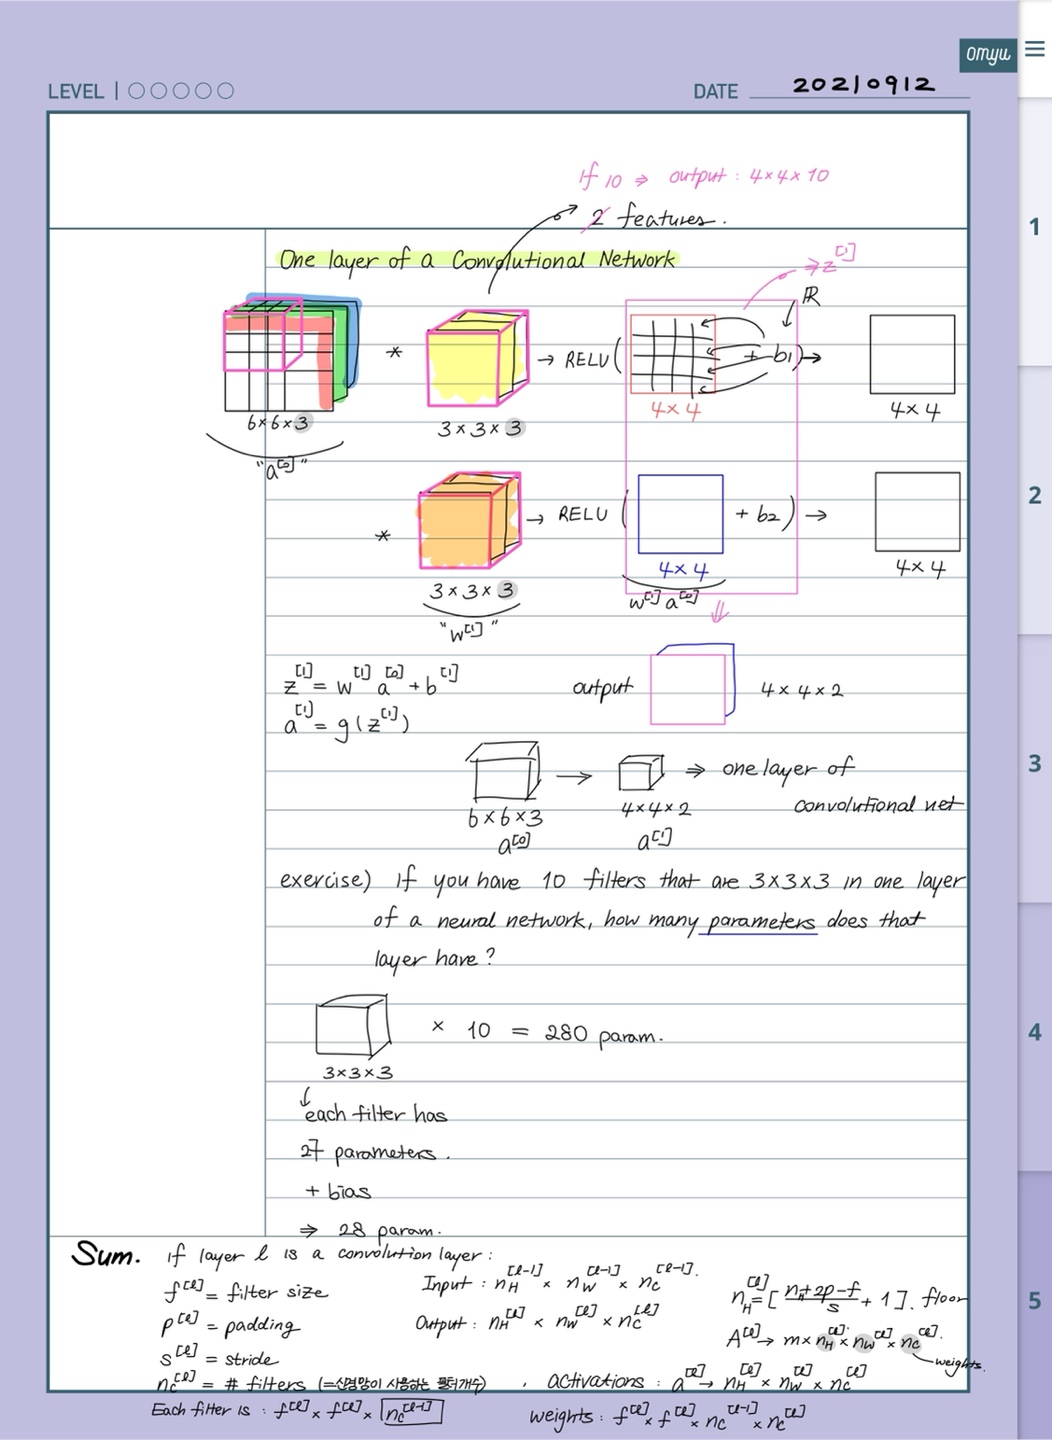 omyu
LEVEL
DATE 20210912
If 10 ⇒ output : 4×4×10
2 features.
One layer of a Convolutional Network
⇒ z[1]
ℝ
* → RELU( + b1) →
6×6×3
3×3×3
4×4
4×4
"a[0]"
* → RELU ( + b2) →
3×3×3
4×4
4×4
"w[1]"
w[1] a[0]
⇓
z[1] = w[1] a[0] + b[1]
output 4×4×2
a[1] = g(z[1])
→ ⇒ one layer of
convolutional net
6×6×3
4×4×2
a[0]
a[1]
exercise) If you have 10 filters that are 3×3×3 in one layer
of a neural network, how many parameters does that
layer have?
× 10 = 280 param.
3×3×3
↓
each filter has
27 parameters.
+ bias
⇒ 28 param.
Sum. if layer l is a convolution layer :
f[l] = filter size
p[l] = padding
s[l] = stride
nc[l] = # filters (=신경망이 사용하는 필터개수)
Each filter is : f[l] × f[l] × nc[l-1]
Input : nH[l-1] × nW[l-1] × nc[l-1].
Output : nH[l] × nW[l] × nc[l]
nH[l] = [ nH+2p-f/s + 1 ]. floor
A[l] → m × nH[l] × nW[l] × nc[l].
weights.
, activations : a[l] → nH[l] × nW[l] × nc[l]
weights : f[l] × f[l] × nc[l-1] × nc[l]
1
2
3
4
5